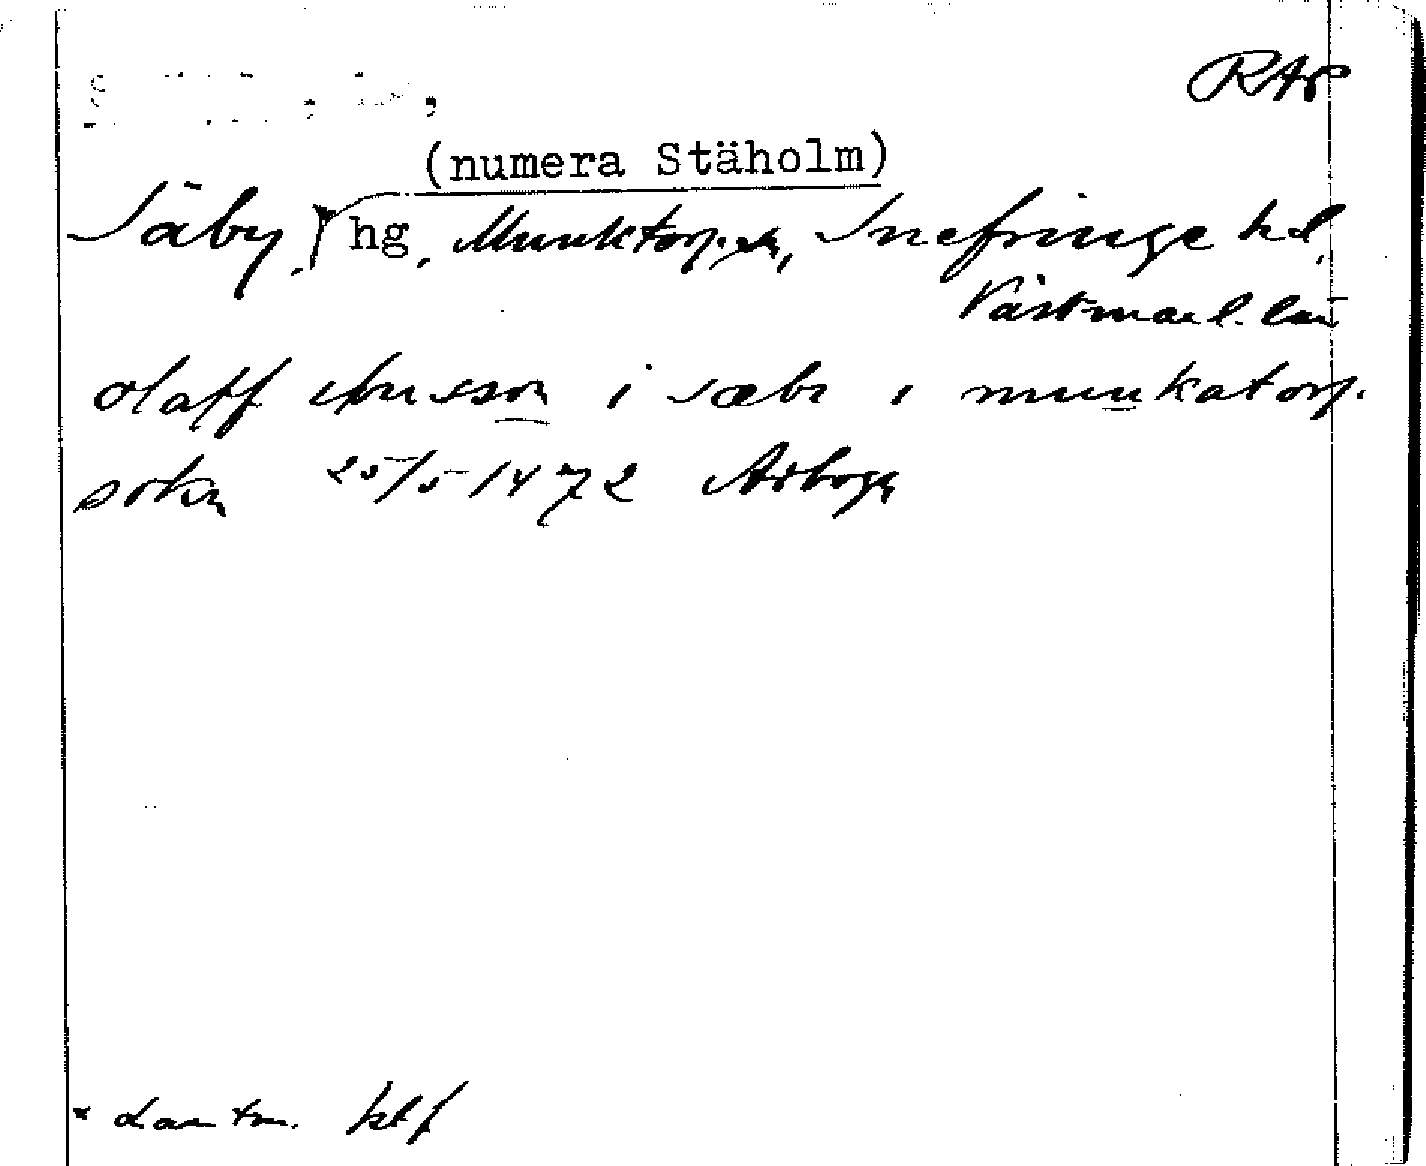 RAP
(numera Stäholm)
Säby, hg, Munktorp sn, Snefringe hd,
Västmanl. län
olaff i sæbi i munkatorp
sokn 25/5 1472 Arboga
* Lantm.